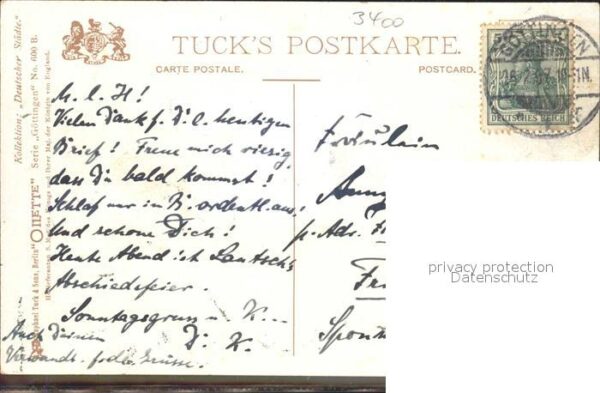 3400
TUCK'S POSTKARTE.
CARTE POSTALE.
POSTCARD.
Kollektion: „Deutscher Städte."
Serie „Göttingen" No. 600 B.
"OILETTE"
Raphael Tuck & Sons, Berlin
GÖTTINGEN
DEUTSCHES REICH
M. l. H!
Vielen Dank f. D. l. heutigen
Brief! Freue mich riesig,
dass Du bald kommst!
Schlaf nur in B. ordentl. aus,
Und schone Dich!
Heute Abend ist Lautsch's
Abschiedsfeier.
Sonntagsgruss u. K...
D. K.
Auch Deinen
Verwandt. frdl. Grüsse.
Fräulein
p. Adr.
privacy protection
Datenschutz